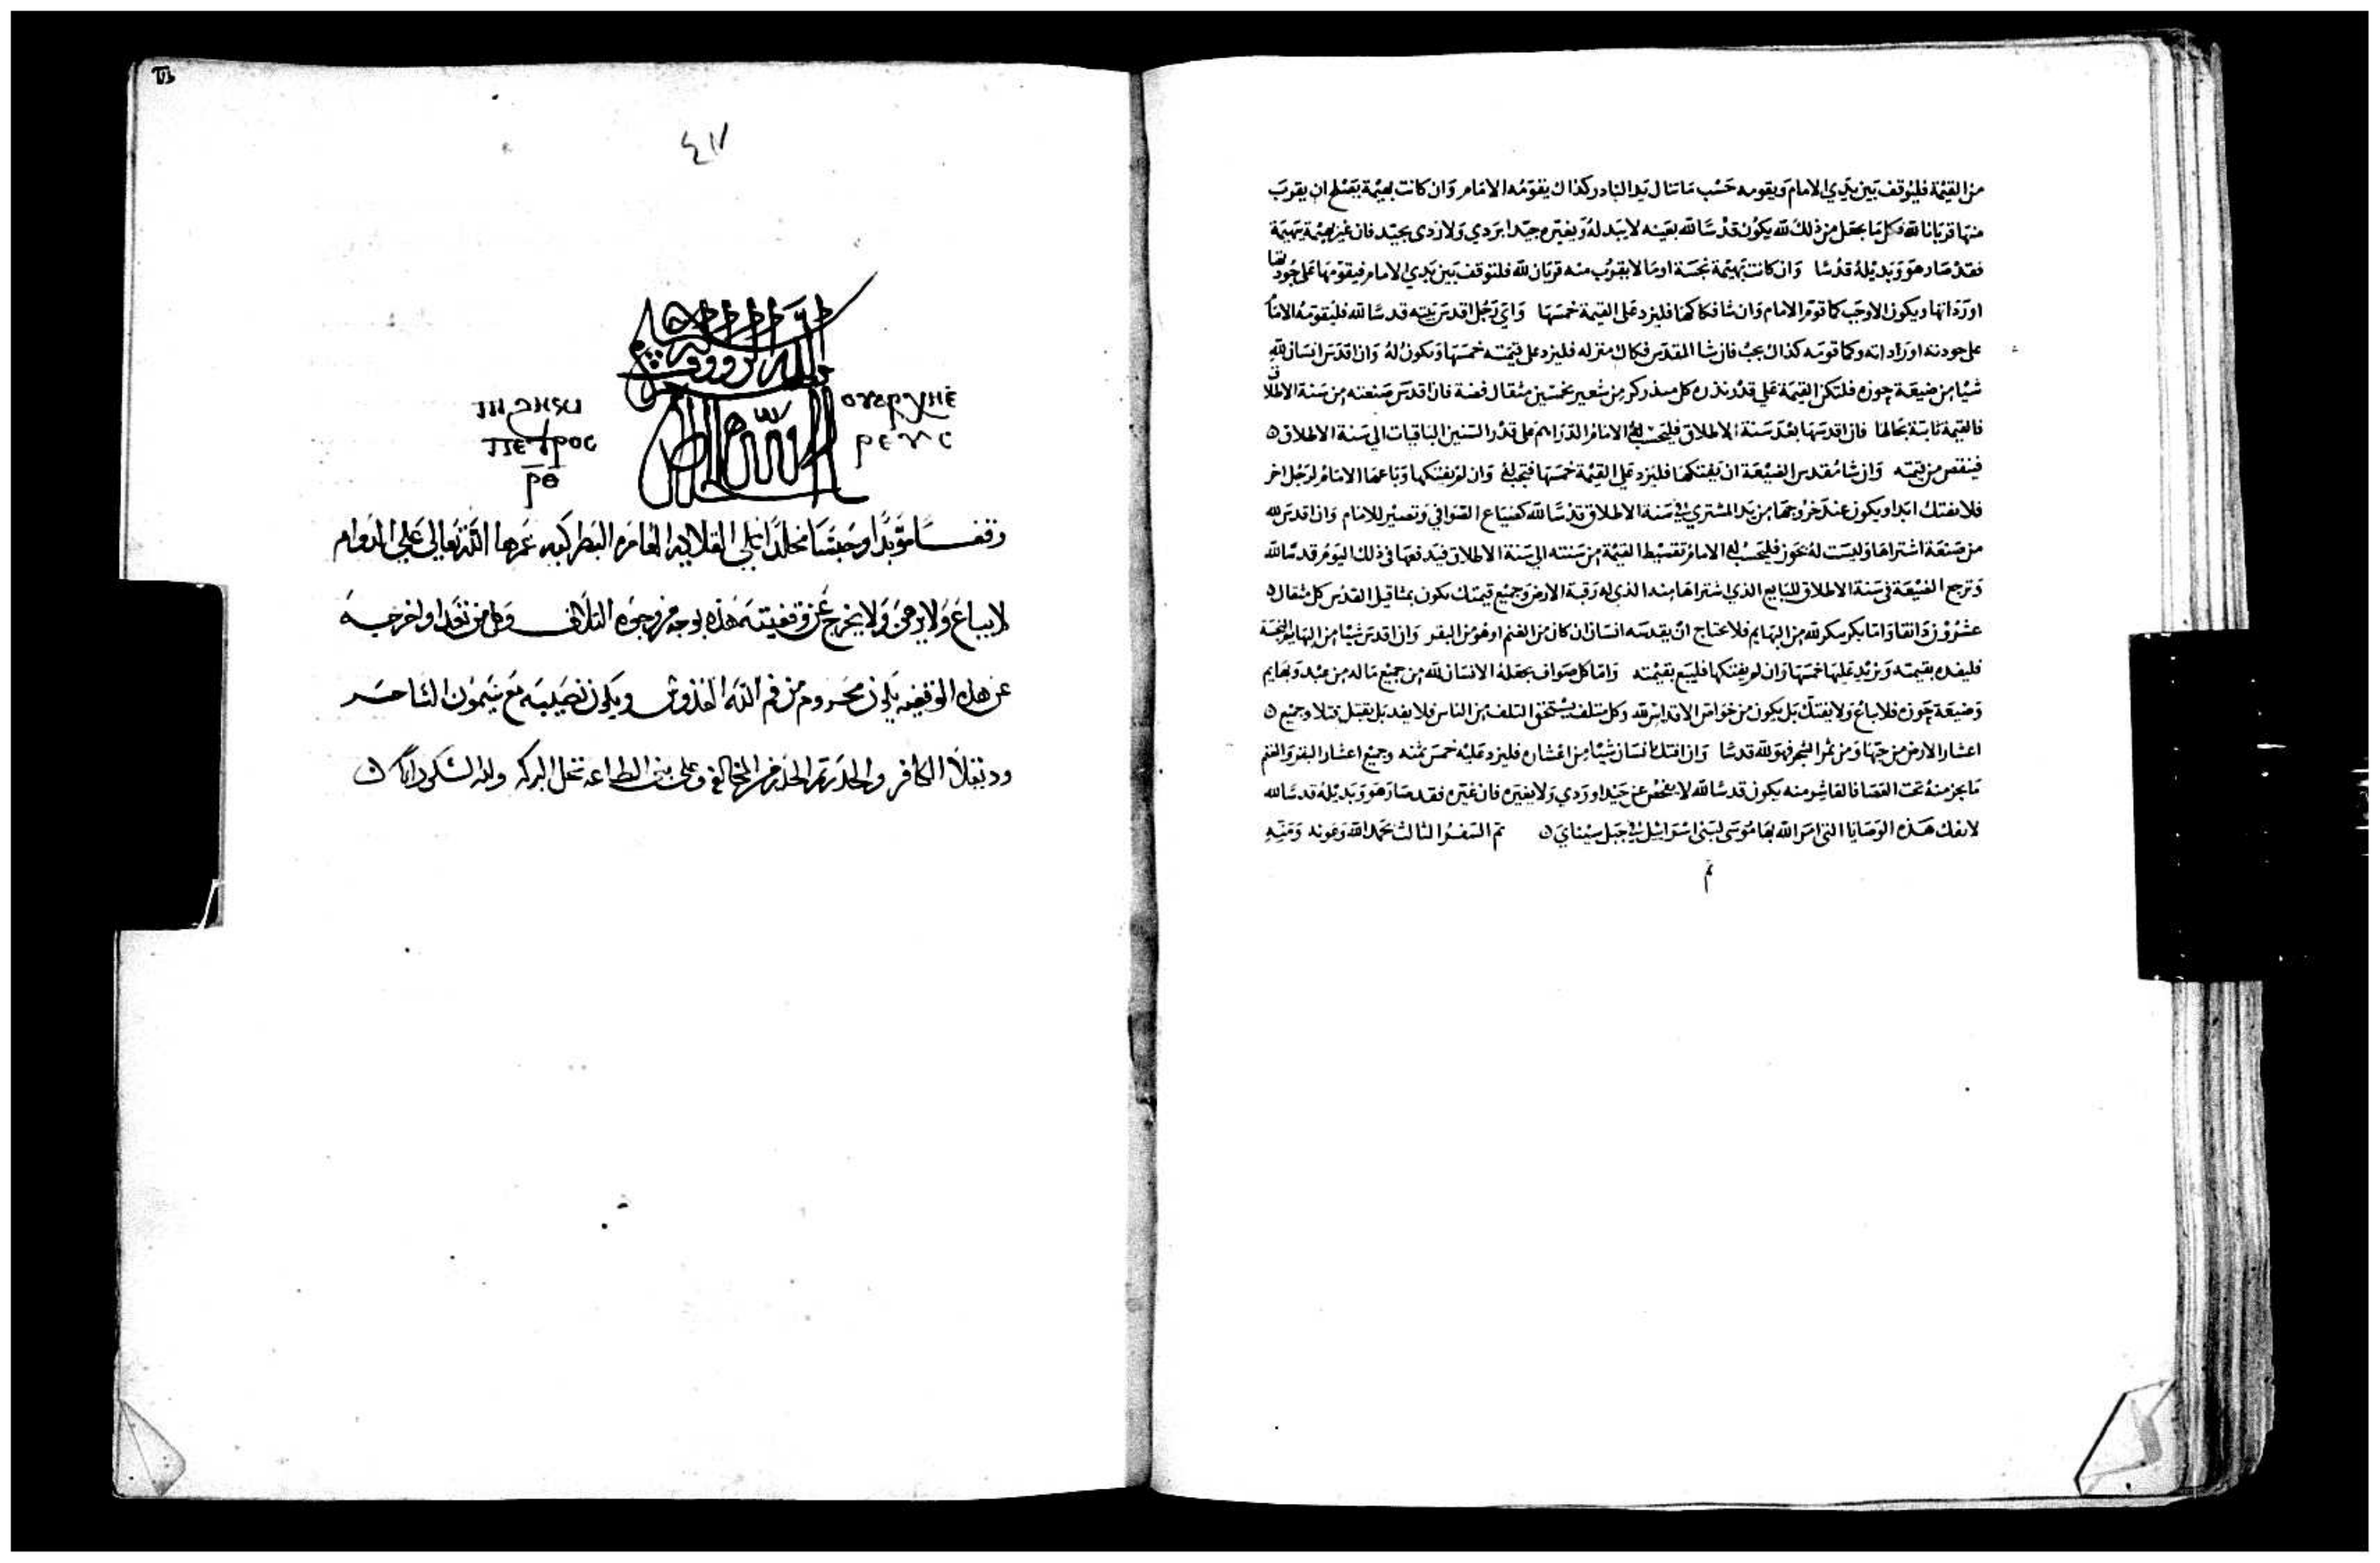 من القيمة فليوقف بين يدي الامام ويقومه حسب ما تنال يد النادر كذاك يقومه الامام وان كانت بهيمة يصلح ان يقرب
منها قربانا لله فكل ما يجعل من ذلك لله يكون قدسا لله بعينه لا يبدله ولا يغيره جيدا بردي ولا ردي بجيد فان غير بهيمة ببهيمة
فقد صار هو وبديله قدسا وان كانت بهيمة نجسة او ما لا يقرب منه قربان لله فلتوقف بين يدي الامام فيقومها على جودتها
او رداتها ويكون الاوجب كما قوم الامام وان شا فكاكها فليزد على القيمة خمسها واي رجل اقدس بيته قدسا لله فليقومه الامام
على جودته او رداته وكما قومه كذاك يجب فان شا المقدس فكاك منزله فليزد على قيمته خمسها ويكون له وان اقدس انسان لله
شيا من ضيعة حوزه فلتكن القيمة على قدر بذره كل مبذر كر من شعير بخمسين مثقال فضة فان اقدس ضيعته من سنة الاطلاق
فالقيمة ثابتة بحالها فان اقدسها بعد سنة الاطلاق فليحسب له الامام الدراهم على قدر السنين الباقيات الى سنة الاطلاق
فينقص من قيمته وان شا مقدس الضيعة ان يفتكها فليزد على القيمة خمسها فتجب له وان لم يفتكها وباعها الامام لرجل اخر
فلا تفتك ابدا ويكون عند خروجها من يد المشتري في سنة الاطلاق قدسا لله كضياع الصوافي وتصير للامام وان اقدس لله
من ضيعة اشتراها وليست له بحوز فليحسب له الامام تقسيط القيمة من سنته الى سنة الاطلاق فيدفعها في ذلك اليوم قدسا لله
وترجع الضيعة في سنة الاطلاق للبايع الذي اشتراها منه الذي له رقبة الارض وجميع قيمتك يكون بمثاقيل القدس كل مثقال
عشرون دانقا واما بكر يبكر لله من البهايم فلا يحتاج ان يقدسه انسان ان كان من الغنم او هو من البقر وان اقدس شيا من البهايم النجسة
فليفده بقيمته ويزيد عليها خمسها وان لم يفتكها فليبع بقيمته واما كل صواف يجعله الانسان لله من جميع ماله من عبد وبهايم
وضيعة حوزه فلا يباع ولا يفتك بل يكون من خواص الاقداس لله وكل متلف يستحق التلف من الناس فلا يفد بل يقتل قتلا وجميع
اعشار الارض من حبها ومن ثمر الشجر فهو لله قدسا وان افتك انسان شيا من اعشاره فليزد عليه خمس ثمنه وجميع اعشار البقر والغنم
ما يجز منه تحت العصا فالعاشر منه يكون قدسا لله لا يفحص عن جيد او ردي ولا يغيره فان غيره فقد صار هو وبديله قدسا لله
لا يفك هذه الوصايا التي امر الله بها موسى لبني اسرائيل في جبل سيناي تم السفر الثالث بحمد الله وعونه ومنه
تم
٤١٧
ⲡⲓϩⲏⲕⲓ
ⲡⲉⲧⲣⲟⲥ
ⲣⲑ
ⲟⲩⲁⲣⲭⲏⲉ
ⲣⲉⲩⲥ
وقفا مؤبدا وحبسا مخلدا على القلاية العامرة البطركيه عمرها الله تعالى على الدوام
لا يباع ولا يرهن ولا يخرج عن وقفيته هذه بوجه من وجوه التلاف وكل من تعدا واخرجه
عن هذه الوقفيه يكون محروم من فم الله القدوس ويكون نصيبه مع سيمون الساحر
ودبقلا الكافر والحذر ثم الحذر من المخالفه وعلى بني الطاعه تحل البركه ولله الشكر دائما